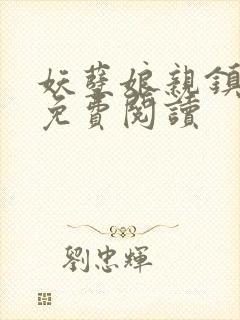 妖孽娘親鎮
免費閱讀
劉忠輝